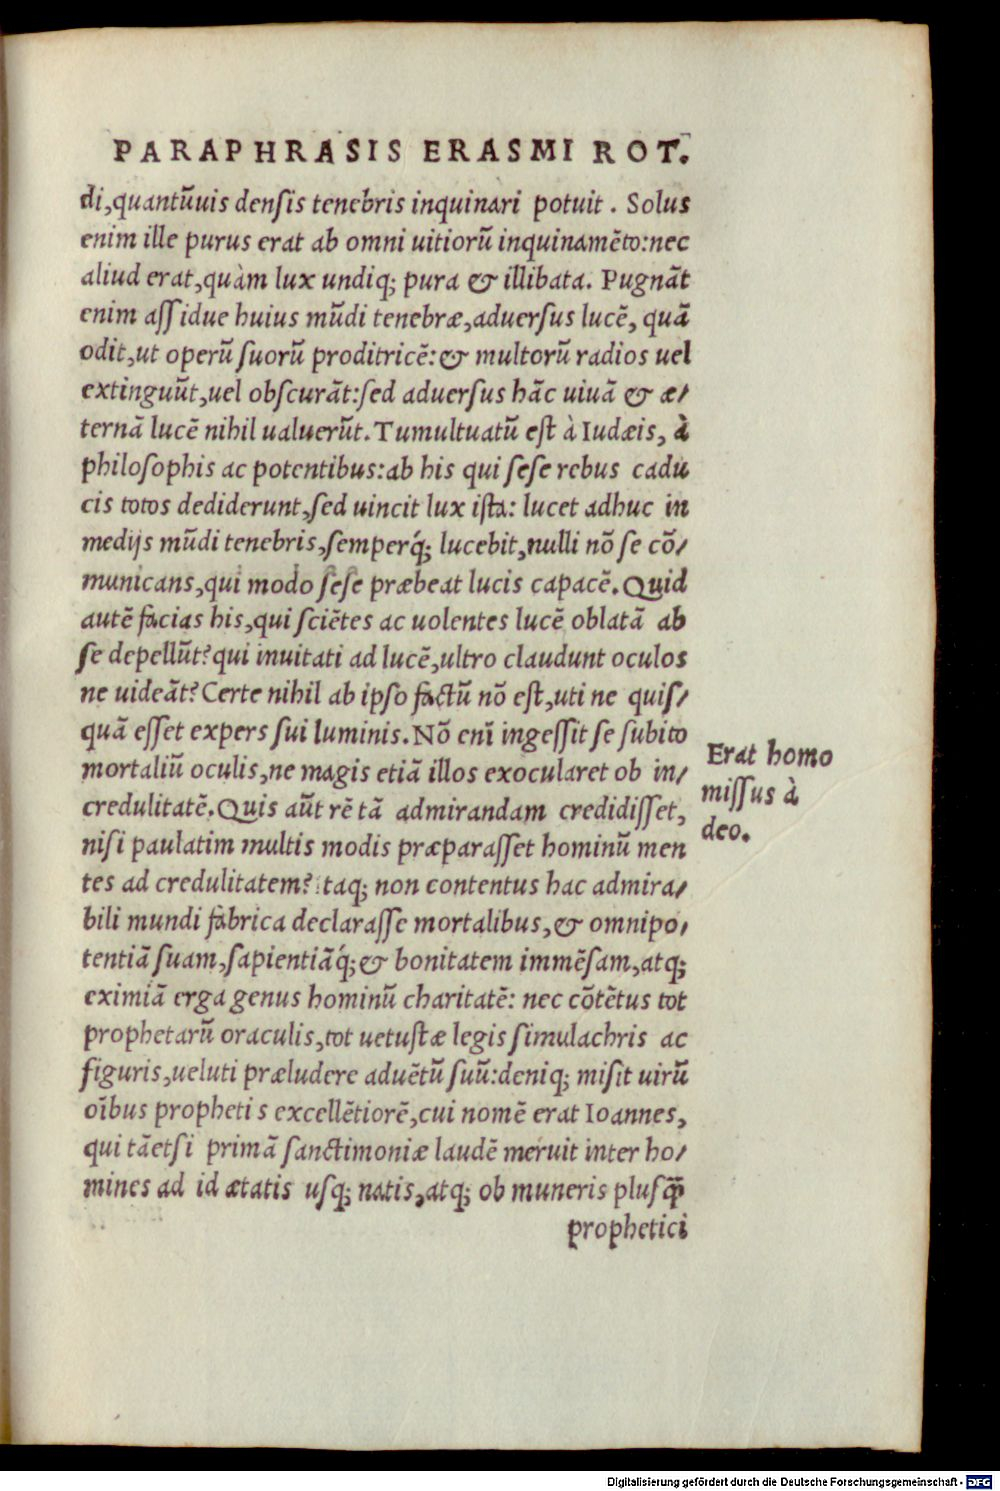 PARAPHRASIS ERASMI ROT.
di,quantũuis densis tenebris inquinari potuit. Solus
enim ille purus erat ab omni uitiorũ inquinamẽto:nec
aliud erat,quàm lux undiq; pura & illibata. Pugnãt
enim assidue huius mũdi tenebræ,aduersus lucẽ, quã
odit,ut operũ suorũ proditricẽ:& multorũ radios uel
extinguũt,uel obscurãt:sed aduersus hãc uiuã & æ/
ternã lucẽ nihil ualuerũt.Tumultuatũ est à Iudæis, à
philosophis ac potentibus:ab his qui sese rebus cadu
cis totos dediderunt,sed uincit lux ista: lucet adhuc in
medijs mũdi tenebris,semperq́; lucebit,nulli nõ se cõ/
municans,qui modo sese præbeat lucis capacẽ.Quid
autẽ facias his,qui sciẽtes ac uolentes lucẽ oblatã ab
se depellũt?qui inuitati ad lucẽ,ultro claudunt oculos
ne uideãt?Certe nihil ab ipso factũ nõ est,uti ne quis/
quã esset expers sui luminis.Nõ enĩ ingessit se subito
mortaliũ oculis,ne magis etiã illos exocularet ob in/
credulitatẽ.Quis aũt rẽ tã admirandam credidisset,
nisi paulatim multis modis præparasset hominũ men
tes ad credulitatem? taq; non contentus hac admira/
bili mundi fabrica declarasse mortalibus,& omnipo/
tentiã suam,sapientiãq́;& bonitatem immẽsam,atq;
eximiã erga genus hominũ charitatẽ: nec cõtẽtus tot
prophetarũ oraculis,tot uetustæ legis simulachris ac
figuris,ueluti præludere aduẽtũ suũ:deniq; misit uirũ
oĩbus propheti s excellẽtiorẽ,cui nomẽ erat Ioannes,
qui tãetsi primã sanctimoniæ laudẽ meruit inter ho/
mines ad id ætatis usq; natis,atq; ob muneris plusq̃
prophetici
Erat homo
missus à
deo.
Digitalisierung gefördert durch die Deutsche Forschungsgemeinschaft - DFG